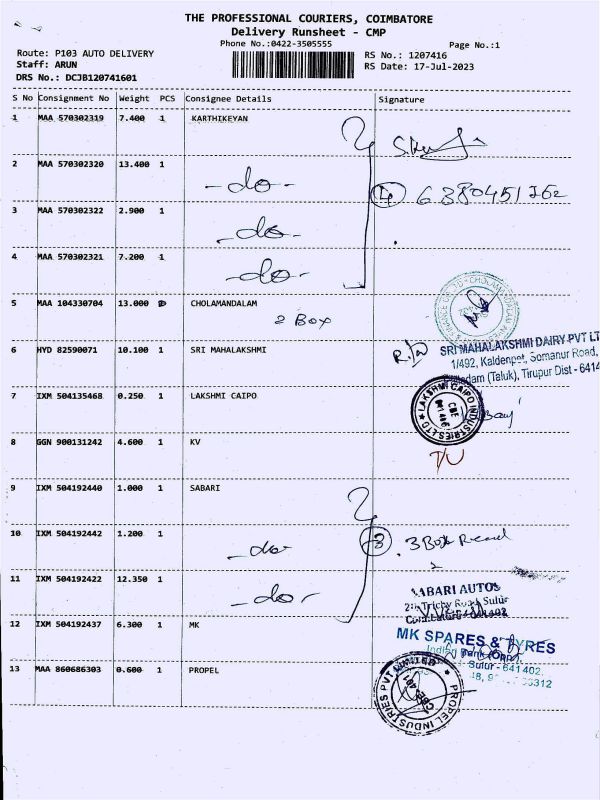 THE PROFESSIONAL COURIERS, COIMBATORE
Delivery Runsheet - CMP
Phone No.:0422-3505555
Page No.:1
Route: P103 AUTO DELIVERY
RS No.: 1207416
Staff: ARUN
RS Date: 17-Jul-2023
DRS No.: DCJB120741601
S No Consignment No Weight PCS Consignee Details Signature
1 MAA 570302319 7.400 1 KARTHIKEYAN
2 MAA 570302320 13.400 1
-do-
4 6380451762
3 MAA 570302322 2.900 1
-do-
4 MAA 570302321 7.200 1
-do-
5 MAA 104330704 13.000 CHOLAMANDALAM
2 Box
6 HYD 82590071 10.100 1 SRI MAHALAKSHMI
SRI MAHALAKSHMI DAIRY PVT LT
1/492, Kaldenpet, Somanur Road,
(Taluk), Tirupur Dist - 6414
7 IXM 504135468 0.250 1 LAKSHMI CAIPO
LAKSHMI CAIPO INDUSTRIES LTD
CBE
8 GGN 900131242 4.600 1 KV
9 IXM 504192440 1.000 1 SABARI
10 IXM 504192442 1.200 1
-do-
3 3 Box
11 IXM 504192422 12.350 1
-do-
SABARI AUTOS
Trichy Road Sulur
12 IXM 504192437 6.300 1 MK
MK SPARES & TYRES
Indian Bank (Opp)
Sulur - 641402
13 MAA 860686303 0.600 1 PROPEL
PROPEL INDUSTRIES PVT LIMITED